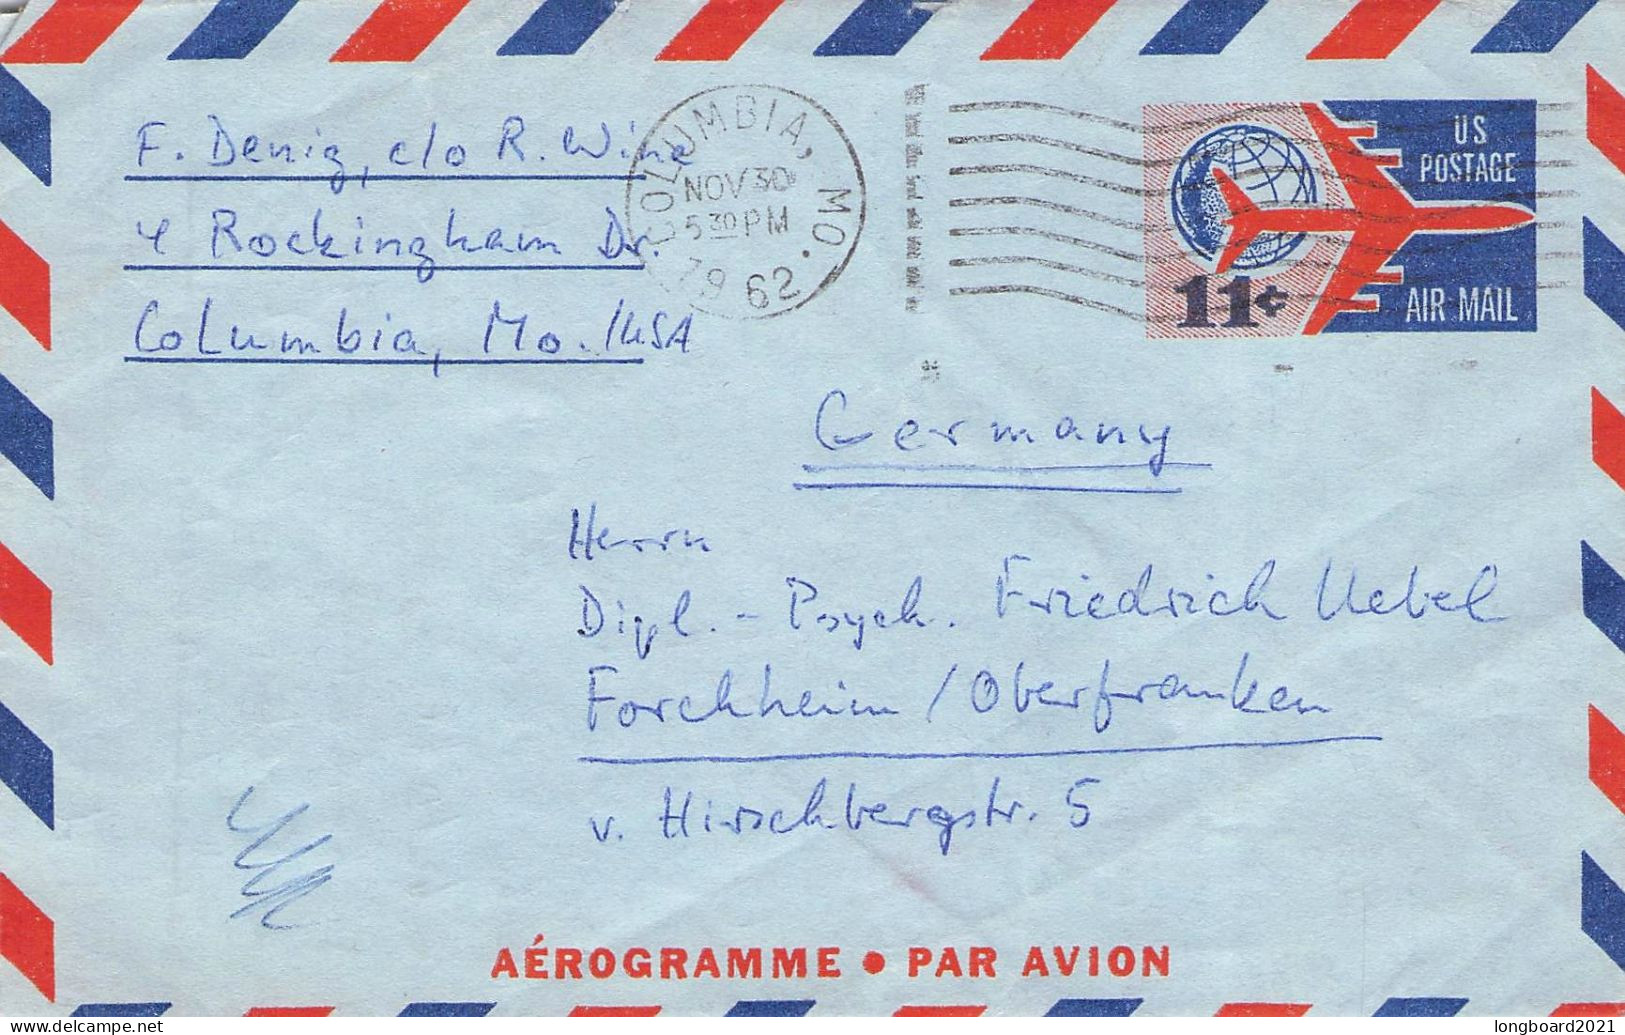 F. Denig, c/o R. Wine
4 Rockingham Dr.
Columbia, Mo. /USA
COLUMBIA, MO.
NOV 30
5 30 PM
1962
US
POSTAGE
11¢
AIR MAIL
Germany
Herrn
Dipl.-Psych. Friedrich Uebel
Forchheim/Oberfranken
v. Hirschbergstr. 5
AÉROGRAMME • PAR AVION
www.delcampe.net
longboard2021